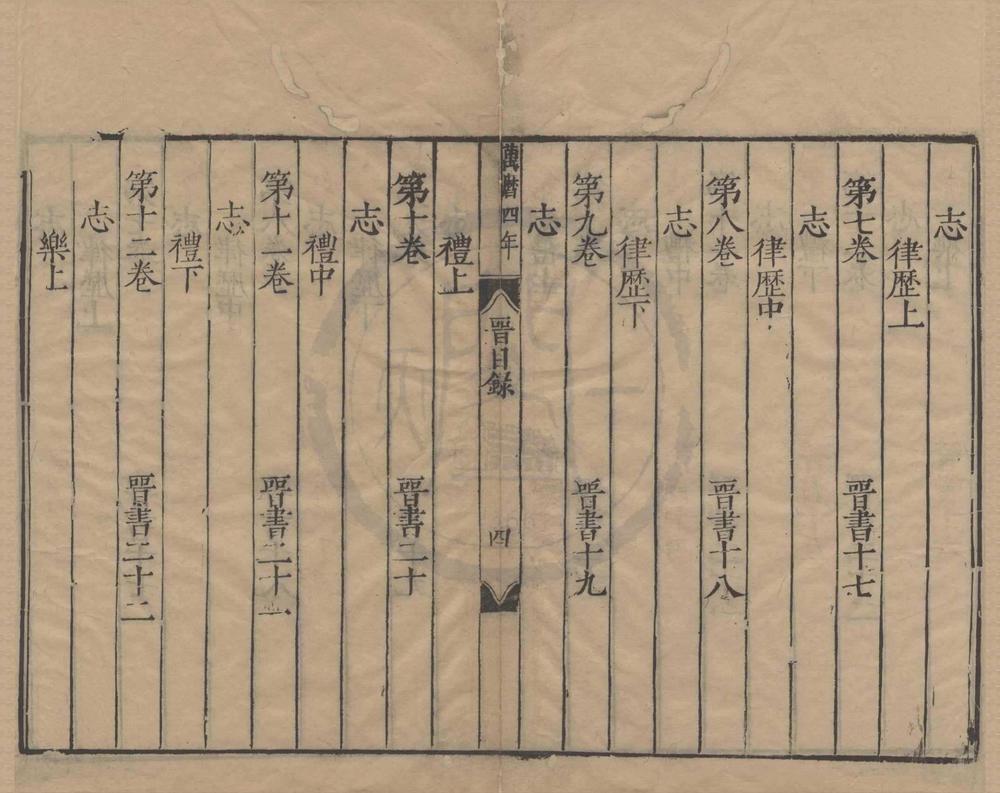 志
律歷上
第七卷 晉書十七
志
律歷中
第八卷 晉書十八
志
律歷下
第九卷 晉書十九
志
萬曆四年
晉目錄
四
禮上
第十卷 晉書二十
志
禮中
第十一卷 晉書二十一
志
禮下
第十二卷 晉書二十二
志
樂上